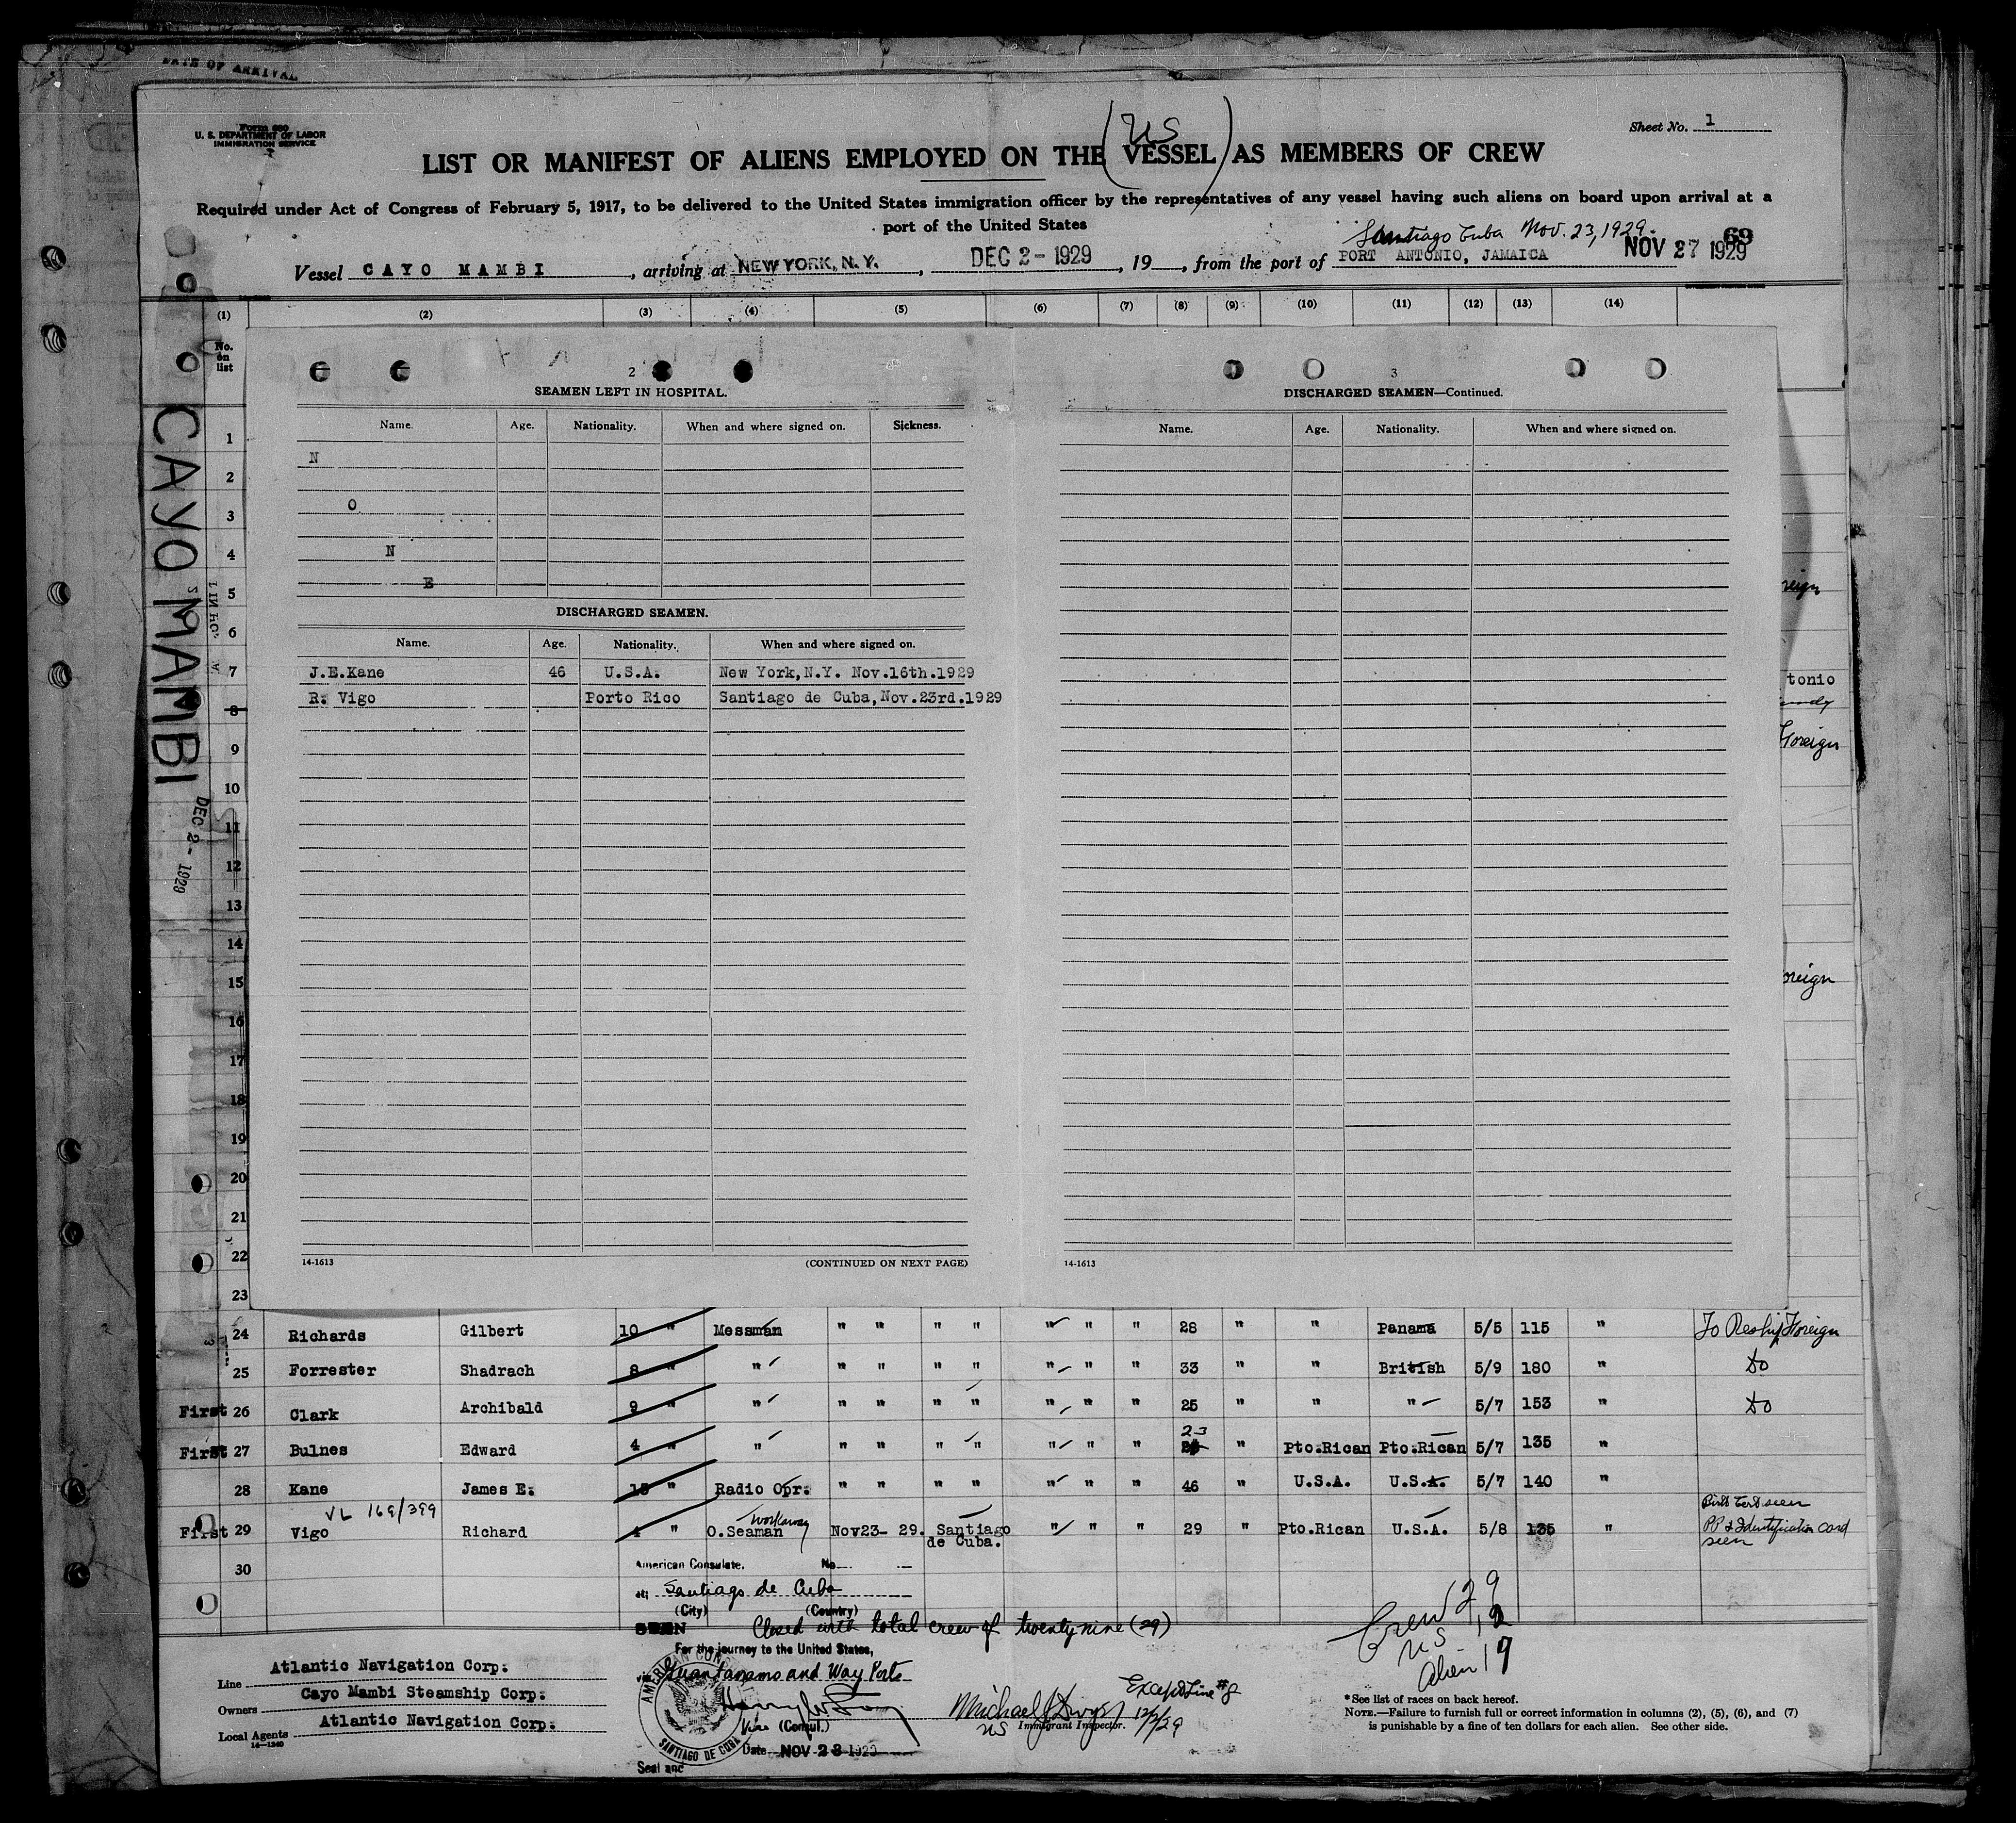 DATE OF ARRIVAL
Form 680
U. S. DEPARTMENT OF LABOR
IMMIGRATION SERVICE
Sheet No. 1
(US)
LIST OR MANIFEST OF ALIENS EMPLOYED ON THE VESSEL AS MEMBERS OF CREW
Required under Act of Congress of February 5, 1917, to be delivered to the United States immigration officer by the representatives of any vessel having such aliens on board upon arrival at a
port of the United States
Santiago Cuba Nov. 23, 1929.
69
Vessel CAYO MAMBI, arriving at NEW YORK, N. Y., DEC 2 - 1929, 19__, from the port of PORT ANTONIO, JAMAICA NOV 27 1929
(1) (2) (3) (4) (5) (6) (7) (8) (9) (10) (11) (12) (13) (14)
No. on list
CAYO MAMBI
DEC 2 - 1929
2
SEAMEN LEFT IN HOSPITAL.
Name. Age. Nationality. When and where signed on. Sickness.
N
O
N
E
DISCHARGED SEAMEN.
Name. Age. Nationality. When and where signed on.
J.E.Kane 46 U.S.A. New York,N.Y. Nov.16th.1929
R. Vigo Porto Rico Santiago de Cuba,Nov.23rd.1929
14-1613 (CONTINUED ON NEXT PAGE)
3
DISCHARGED SEAMEN—Continued.
Name. Age. Nationality. When and where signed on.
14-1613
1
2
3
4
5
6
7
8
9
10
11
12
13
14
15
16
17
18
19
20
21
22
23
reign
tonio
Foreign
oreign
24 Richards Gilbert 10 " Messman " " " " " " " 28 " " Panama 5/5 115 " To Reship Foreign
25 Forrester Shadrach 8 " " " " " " " " " 33 " " British 5/9 180 " do
First 26 Clark Archibald 9 " " " " " " " " " 25 " " " 5/7 153 " do
First 27 Bulnes Edward 4 " " " " " " " " " 23 " Pto.Rican Pto.Rican 5/7 135 "
28 Kane James E. 15 " Radio Opr. " " " " " " " 46 " U.S.A. U.S.A. 5/7 140 "
VL 169/399
First 29 Vigo Richard 1 " O.Seaman Workaway Nov23- 29. Santiago de Cuba. " " " 29 " Pto.Rican U.S.A. 5/8 135 " Birth Cert seen
PP & Identification card seen
30
American Consulate. No.
at Santiago de Cuba
(City) (Country)
SEEN Closed with total crew of twenty nine (29)
For the journey to the United States,
via Guantanamo and Way Ports
Vice (Consul.)
Date NOV 23 1929
Seal and
AMERICAN CONSULATE SANTIAGO DE CUBA
Line Atlantic Navigation Corp.
Owners Cayo Mambi Steamship Corp.
Local Agents Atlantic Navigation Corp.
14—1240
Michael J Dwyer 12/2/29
US Immigrant Inspector.
Except Line #8
Crew 29
US 12
Alien 17
* See list of races on back hereof.
NOTE.—Failure to furnish full or correct information in columns (2), (5), (6), and (7)
is punishable by a fine of ten dollars for each alien. See other side.